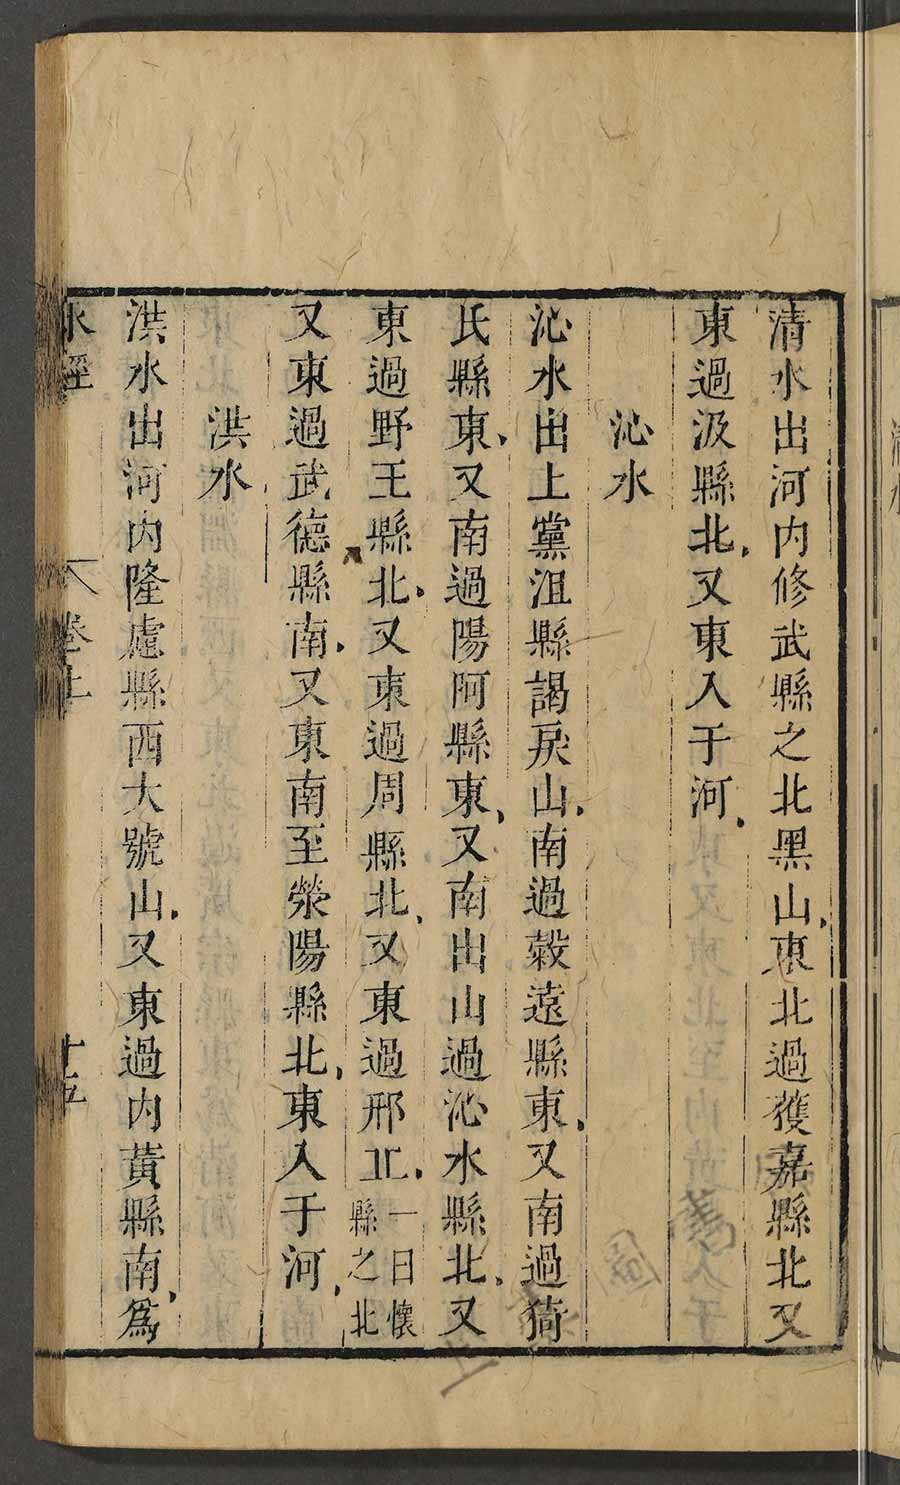 清水出河内修武縣之北黑山東北過獲嘉縣北又
東過汲縣北又東入于河
沁水
沁水出上黨沮縣謁戾山南過榖遠縣東又南過猗
氏縣東又南過陽阿縣東又南出山過沁水縣北又
東過野王縣北又東過周縣北又東過邢丘一曰懷
縣之北
又東過武德縣南又東南至滎陽縣北東入于河
洪水
洪水出河内隆慮縣西大號山又東過内黃縣南爲
水經
卷上
十五